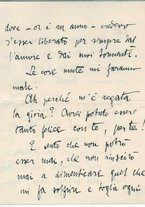 dove - or è un anno - credevo
s'esser liberato per sempre dal
l'amore e dai suoi tormenti.
Le ore mute mi fanno
male.
Oh perchè m'è negata
la gioia? Avrei potuto essere
tanto felice con te, per te!
E sento che non potrò
esser mai, che non riuscirò
mai a dimenticare quel che
mi fa soffrire e toglie ogni